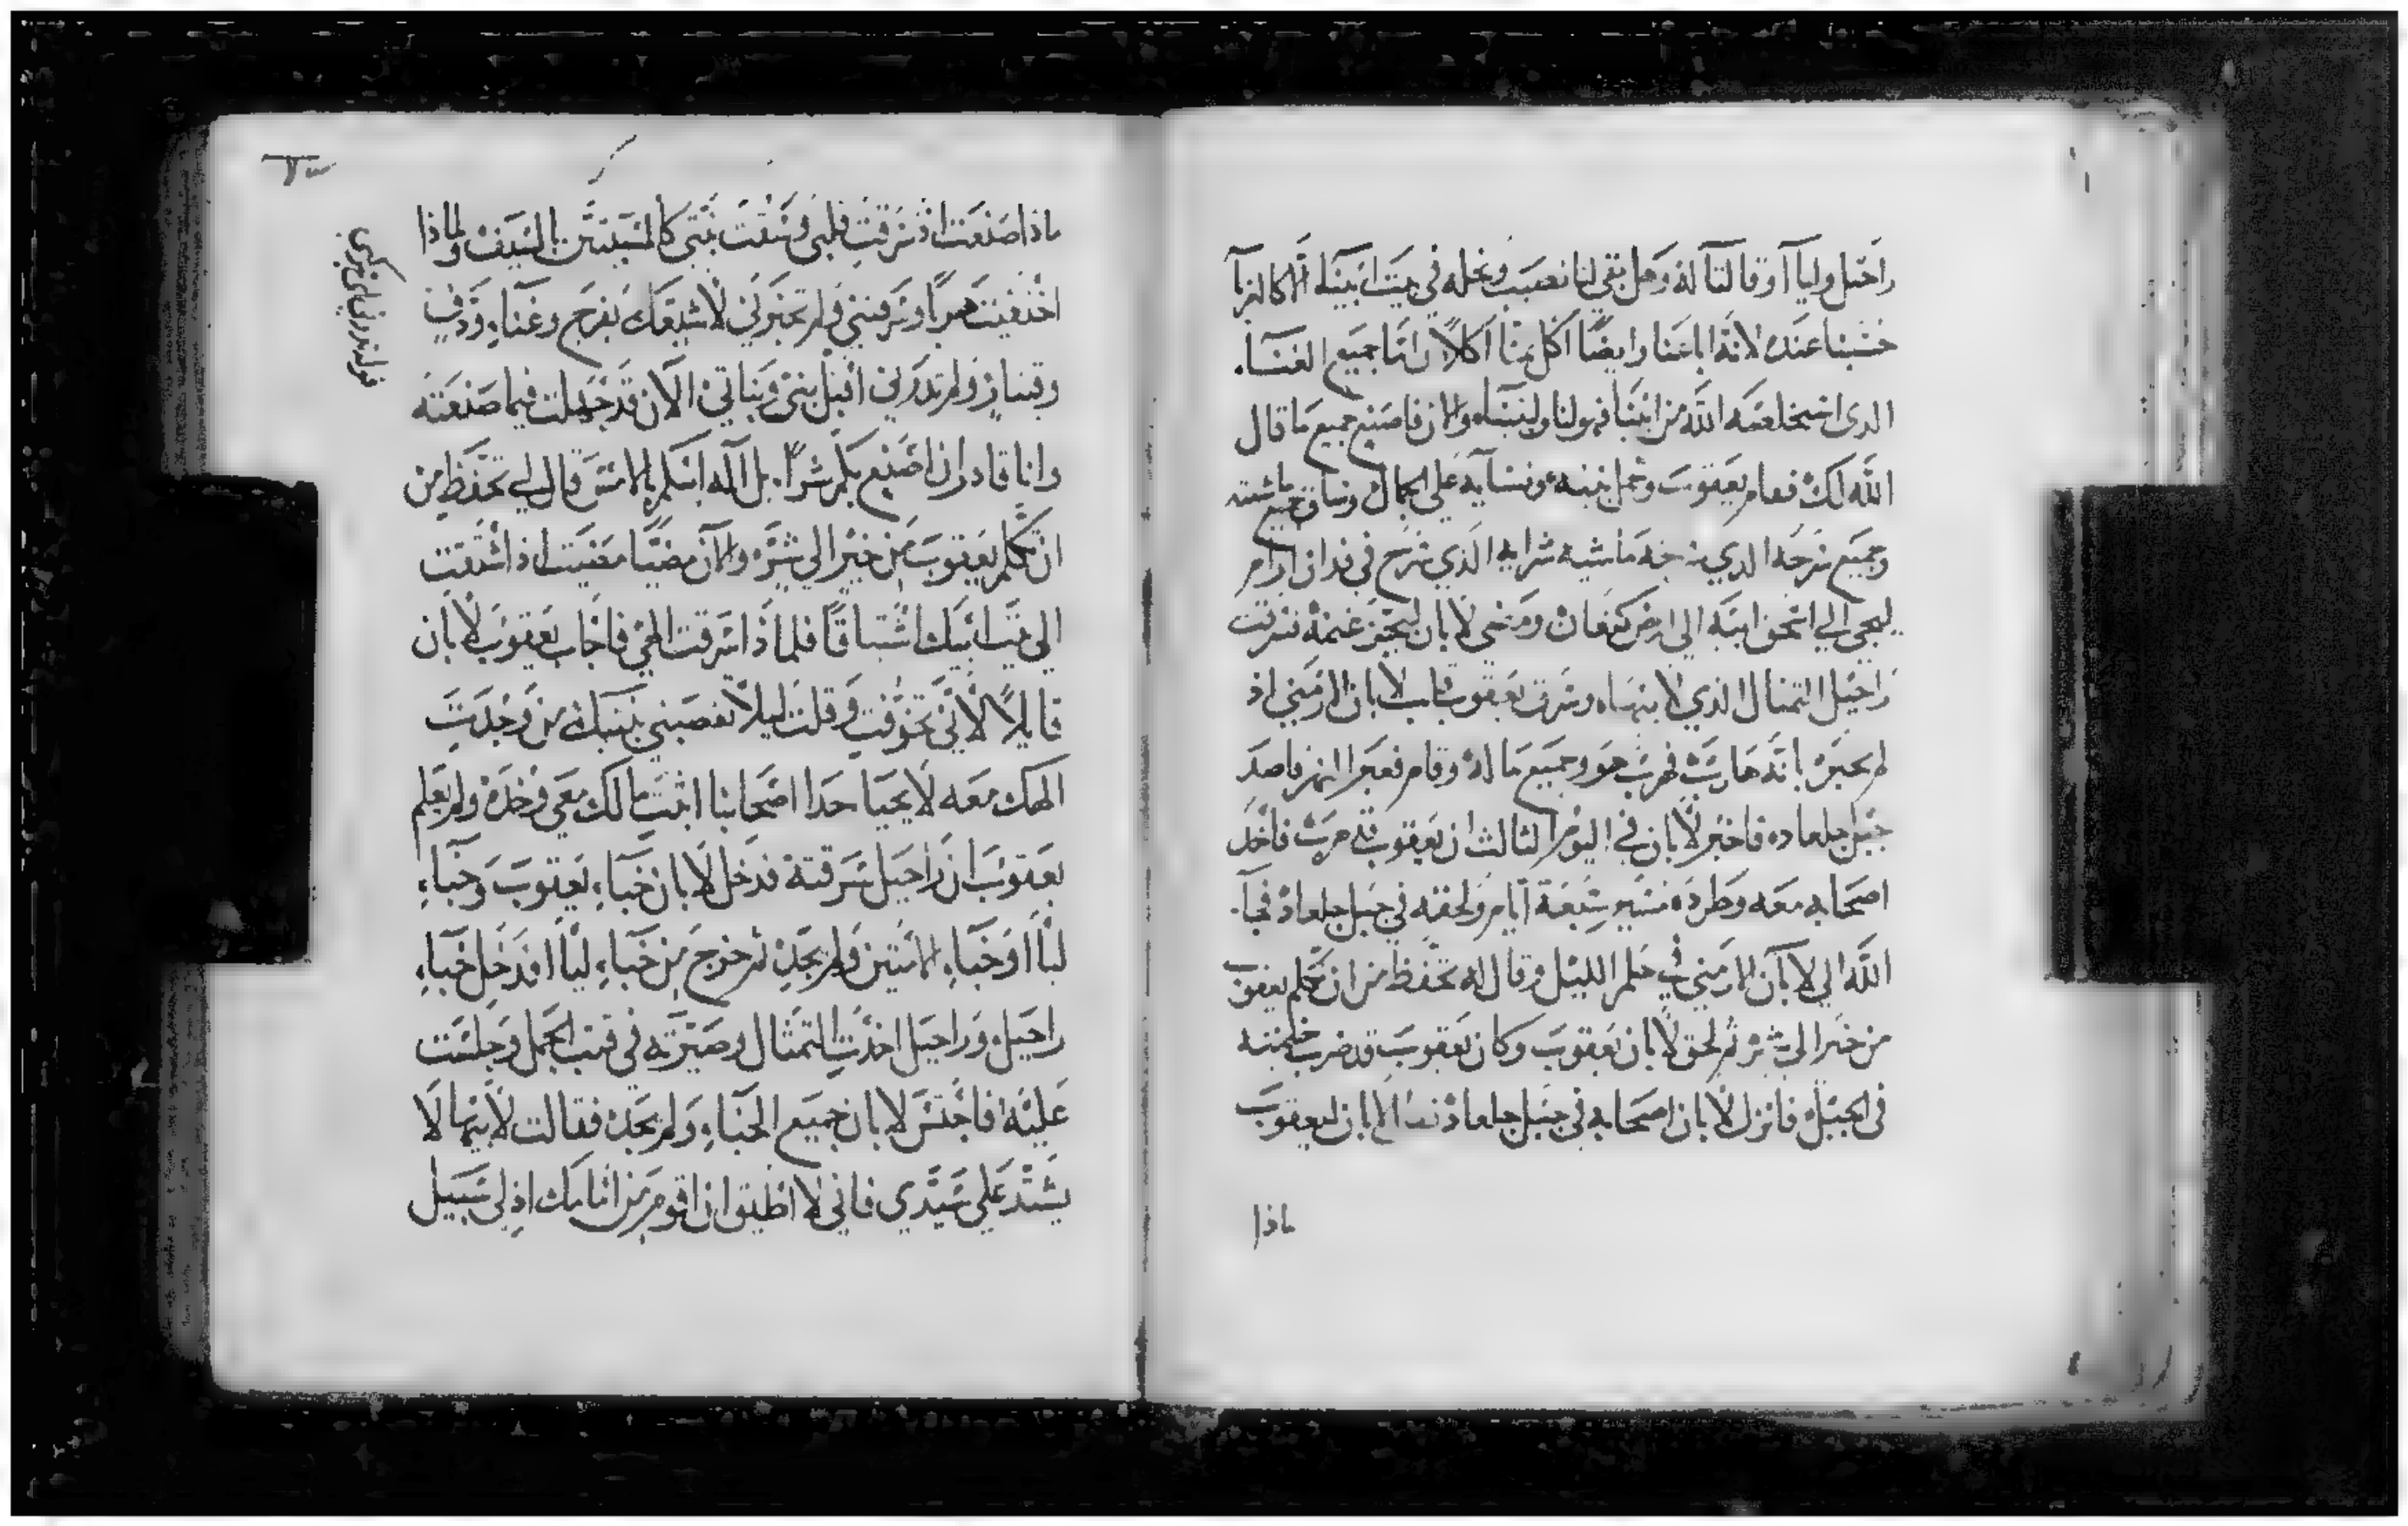 راحيل وليآ وقالتا له وهل بقي لنا نصيب ونحله في بيت ابينا الا كالغربآ
حسبنا عنده لانه اباعنا وايضًا اكل ثمننا اكلًا ان لنا جميع الغنآ.
الدى استخلصه الله من ابينا فهو لنا ولبنينا والان فاصنع جميع ما قال
الله لك فقام يعقوب وحمل بنيه ونسآيه على الجمال وساق جميع ماشيته
وجميع سرحه الدي سرحه ماشيه شرايه الذي سرح في فدان ارام
ليجي الي اسحق ابيه الى ارض كنعان ومضى لابان ليجز غنمه فسرقت
راحيل التمثال الذي لابيها وسرق يعقوب قلب لابان الارمني اذ
لم يخبره بانه هارب فهرب هو وجميع ما له وقام فعبر النهر قاصد
جبل جلعاده فاخبر لابان في اليوم الثالث ان يعقوب قد هرب فاخذ
اصحابه معه وطرده مسير سبعة ايام ولحقه في جبل جلعاد فجآ.
الله الي لابان الارمني في حلم الليل وقال له تحفظ من ان تكلم يعقوب
من خير الى شر ثم لحق لابان يعقوب وكان يعقوب قد ضرب خيمته
في الجبل فانزل لابان اصحابه في جبل جلعاد فقال لابان ليعقوب
ماذا
ماذا صنعت اذ سرقت قلبي وسقت بنتي كالمسبيتين بالسيف ولماذا
اختفيت هربًا وسرقتني ولم تخبرني لاشيعك بفرح وغناء ودف
وقيثار ولم تدرني اقبل بني وبناتي الان قد جهلت فيما صنعته
وانا قادر ان اصنع بكم شرًا. بل اله ابيكم بالامس قال لي تحفظ من
ان تكلم يعقوب من خير الى شر والان مضيًا مضيت اذ اشتقت
الى بيت ابيك اشتياقًا فلماذا سرقت الهي فاجاب يعقوب لابان
قايلًا لاني تخوفت وقلت ليلا تغصبني بنتيك من وجدت
الهك معه لا يحيا حدا اصحابنا اثبت ما لك معي وخذه ولم يعلم
يعقوب ان راحيل سرقته فدخل لابان خباء يعقوب وخباء
ليآ وخباء الامتين ولم يجد ثم خرج من خباء ليآ فدخل خباء
راحيل وراحيل اخذت التمثال وصيرته في قتب الجمل وجلست
عليه فاجتس لابان جميع الخباء ولم يجد فقالت لابيها لا
يشتد على سيدي فاني لا اطيق ان اقوم من امامك اذ لي سبيل